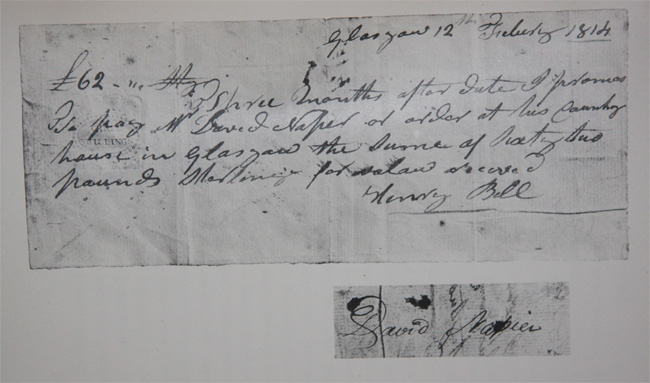 Glasgow 12th Febery 1814
£62 - "
Three months after date I promes
To pay Mr David Naper or order at his Counting
house in Glasgow the sume of sixty two
pounds Sterling for valaw receved
Henry Bell
LLING
David Napier